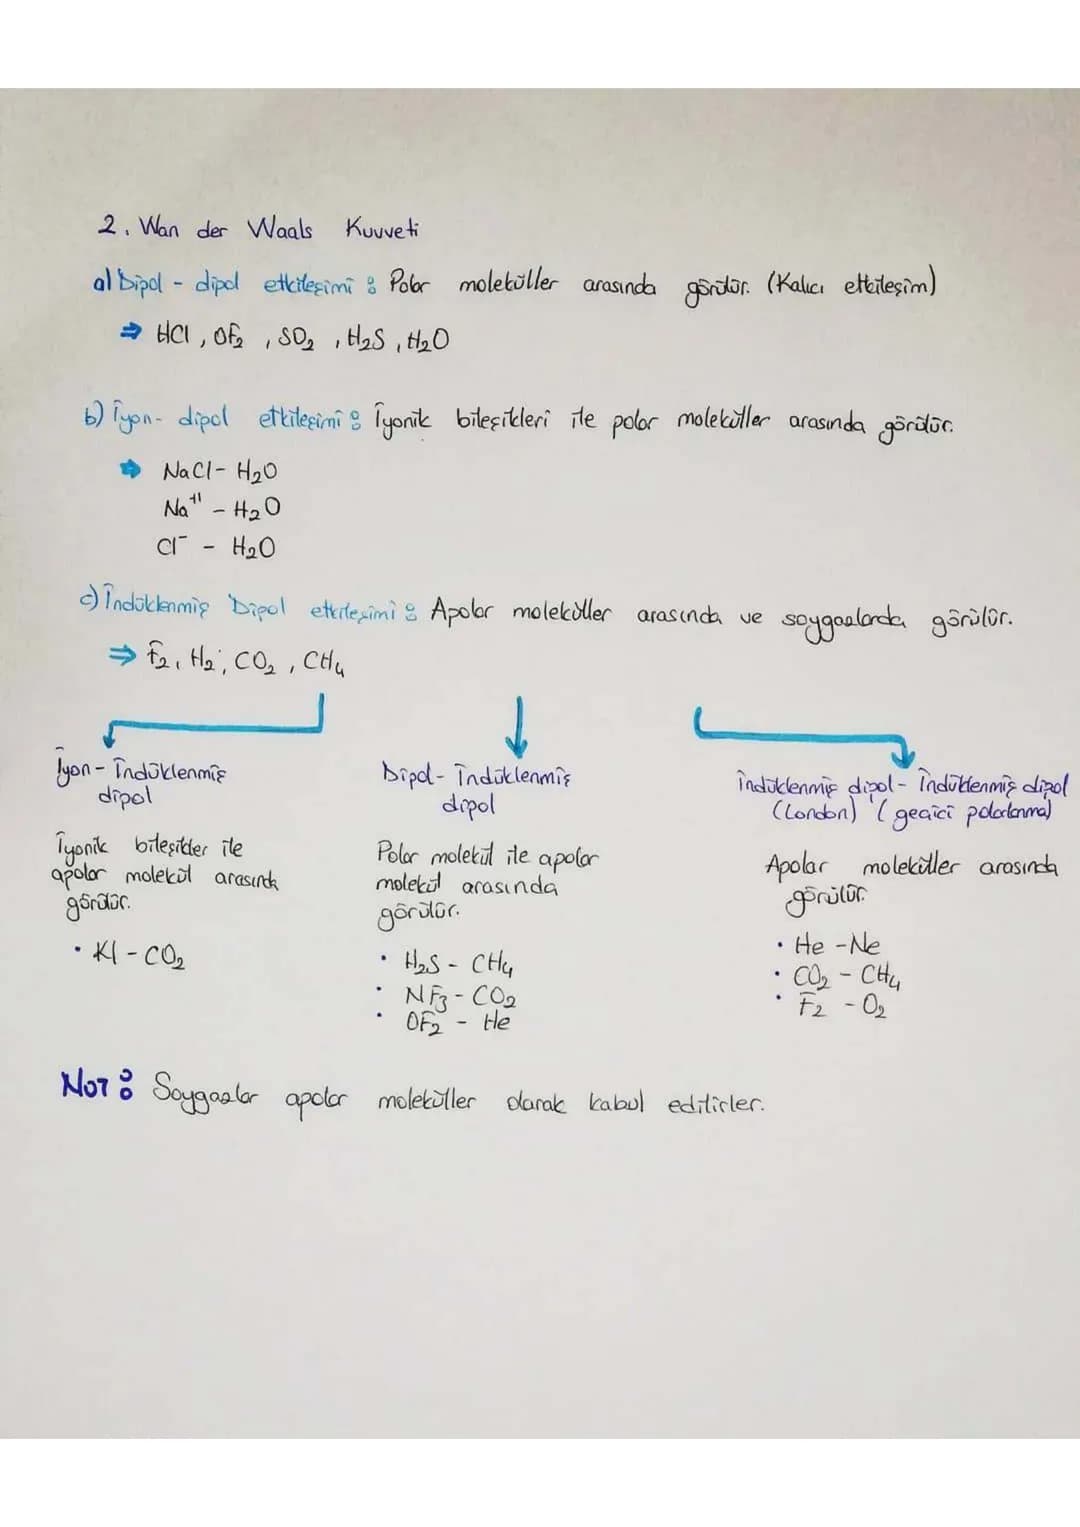 2. Wan der Waals Kuvveti
a) Dipol - dipol etkileşimi : Polar moleküller arasında görülür. (Kalıcı etkileşim)
⇒ HCl, OF₂, SO₂, H₂S, H₂O
b) İyon - dipol etkileşimi : İyonik bileşikleri ile polar moleküller arasında görülür.
⇒ NaCl - H₂O
Na⁺¹ - H₂O
Cl⁻ - H₂O
c) İndüklenmiş Dipol etkileşimi : Apolar moleküller arasında ve soygazlarda görülür.
⇒ F₂, H₂, CO₂, CH₄
İyon - İndüklenmiş
dipol
İyonik bileşikler ile
apolar molekül arasında
görülür.
• KI - CO₂
Dipol - İndüklenmiş
dipol
Polar molekül ile apolar
molekül arasında
görülür.
• H₂S - CH₄
• NF₃ - CO₂
• OF₂ - He
İndüklenmiş dipol - İndüklenmiş dipol
(London) (geçici polarlanma)
Apolar moleküller arasında
görülür.
• He - Ne
• CO₂ - CH₄
• F₂ - O₂
NOT : Soygazlar apolar moleküller olarak kabul edilirler.